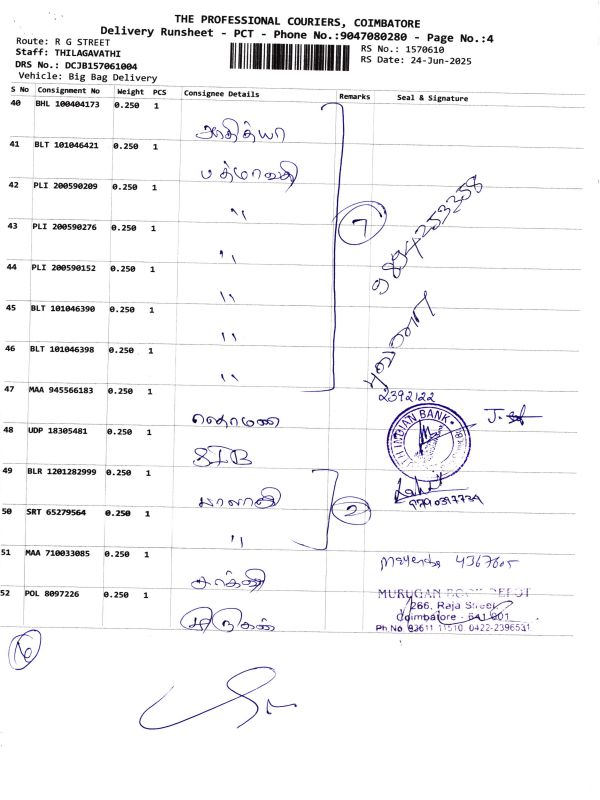 THE PROFESSIONAL COURIERS, COIMBATORE
Delivery Runsheet - PCT - Phone No.:9047080280 - Page No.:4
Route: R G STREET
RS No.: 1570610
Staff: THILAGAVATHI
RS Date: 24-Jun-2025
DRS No.: DCJB157061004
Vehicle: Big Bag Delivery
S No Consignment No Weight PCS Consignee Details Remarks Seal & Signature
40 BHL 100404173 0.250 1
41 BLT 101046421 0.250 1
பத்மாவதி
42 PLI 200590209 0.250 1
"
7
43 PLI 200590276 0.250 1
"
44 PLI 200590152 0.250 1
"
45 BLT 101046390 0.250 1
"
46 BLT 101046398 0.250 1
"
47 MAA 945566183 0.250 1
2392122
48 UDP 18305481 0.250 1
SIB
INDIAN BANK
49 BLR 1201282999 0.250 1
பாலாஜி
2
50 SRT 65279564 0.250 1
"
51 MAA 710033085 0.250 1
52 POL 8097226 0.250 1
MURUGAN BOOK DEPOT
266, Raja Street
Coimbatore - 641 001
Ph No 93611 11510, 0422-2396531